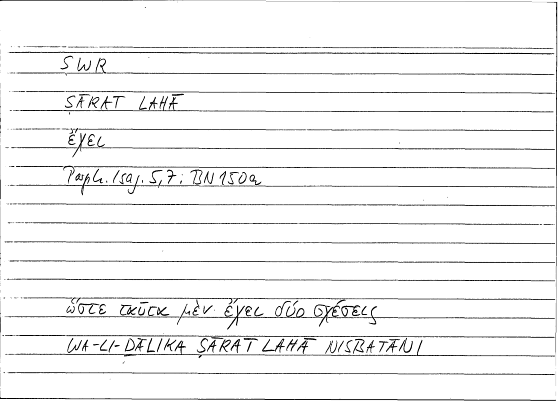 ṢWR
ṢĀRAT LAHĀ
ἔχει
Porph. Isag. 5,7: BN 150a
ὥστε ταῦτα μὲν ἔχει δύο σχέσεις
WA-LI-ḎĀLIKA ṢĀRAT LAHĀ NISBATĀNI